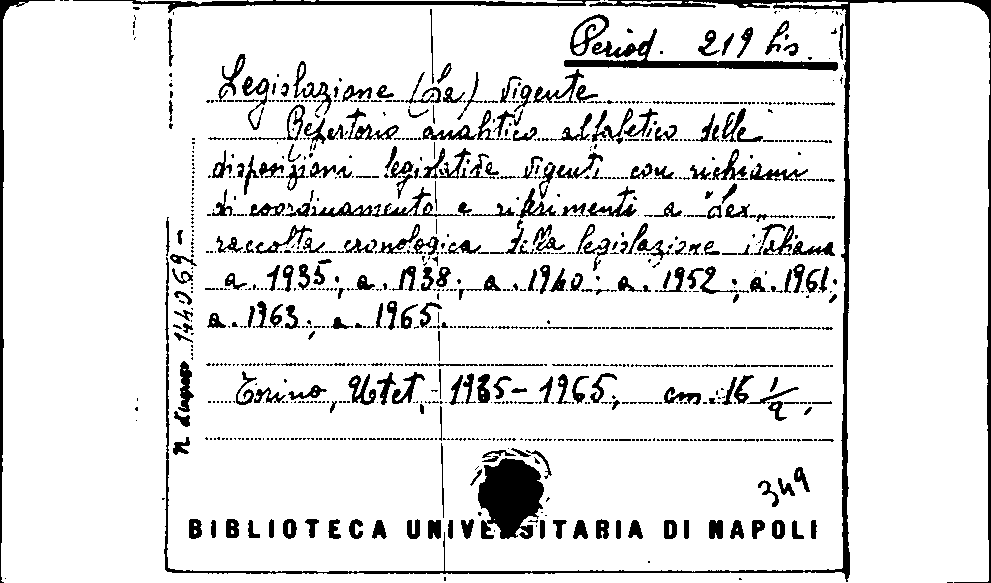 Period. 219 bis
Legislazione (La) vigente
Repertorio analitico alfabetico delle
disposizioni legislative vigenti con richiami
di coordinamento e riferimenti a "Lex„
raccolta cronologica della legislazione italiana
a. 1935; a. 1938; a. 1940; a. 1952; a. 1961;
a. 1963; a. 1965.
Torino, Utet, 1935-1965, cm. 16 1/2,
n. d'ingresso 144069-
349
BIBLIOTECA UNIVERSITARIA DI NAPOLI